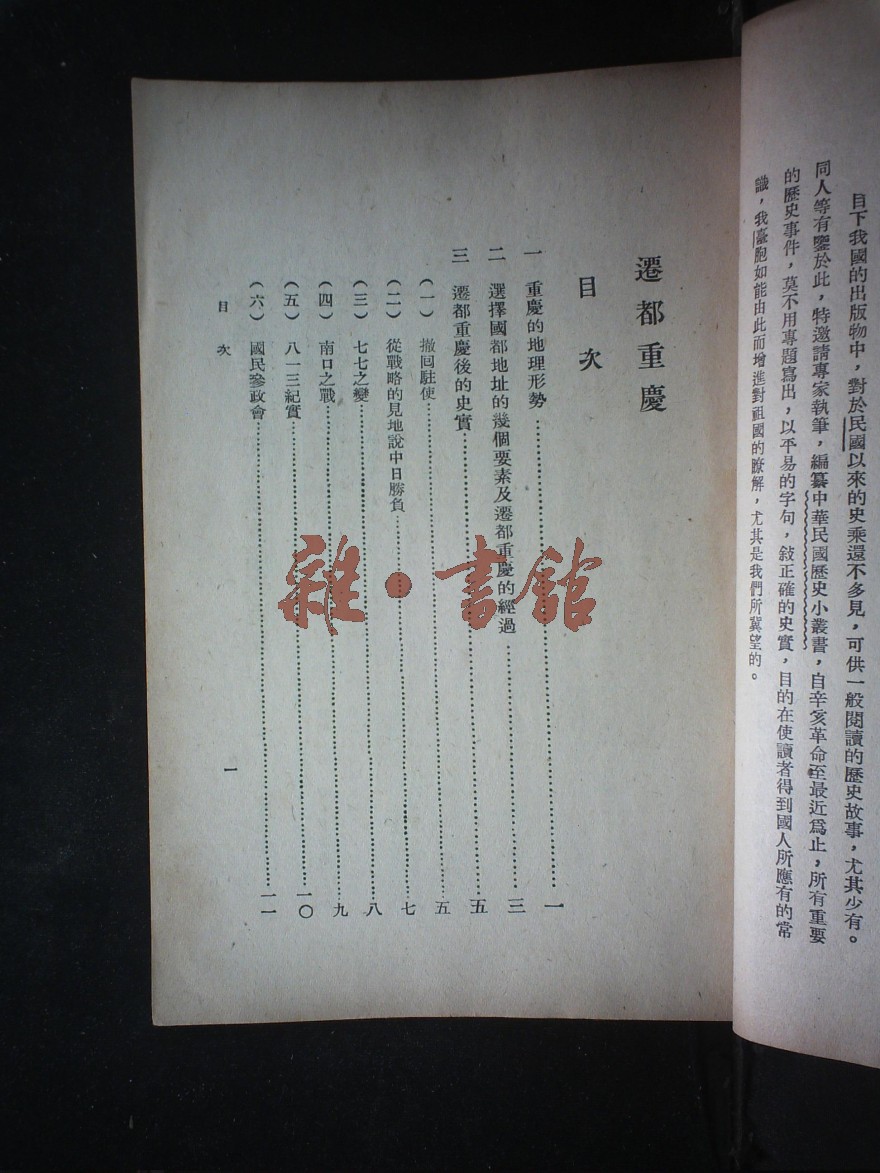 目下我國的出版物中，對於民國以來的史乘還不多見，可供一般閱讀的歷史故事，尤其少有。
同人等有鑒於此，特邀請專家執筆，編纂中華民國歷史小叢書，自辛亥革命至最近爲止，所有重要
的歷史事件，莫不用專題寫出，以平易的字句，敍正確的史實，目的在使讀者得到國人所應有的常
識，我臺胞如能由此而增進對祖國的瞭解，尤其是我們所冀望的。
遷都重慶
目次
一 重慶的地理形勢……一
二 選擇國都地址的幾個要素及遷都重慶的經過……三
三 遷都重慶後的史實……五
（一） 撤回駐使……五
（二） 從戰略的見地說中日勝負……七
（三） 七七之變……八
（四） 南口之戰……九
（五） 八一三紀實……一〇
（六） 國民參政會……一一
目次
一
雜·書館